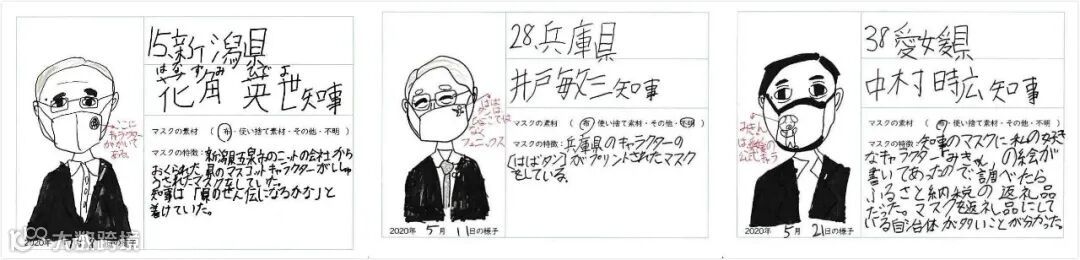 15.新潟県
はな ずみ ひで よ
花角 英世知事
ここに
キャラクター
がかいて
ある。
マスクの素材 ( 布・使い捨て素材・その他・不明 )
マスクの特徴: 新潟県五泉市のニットの会社から
おくられた県のマスコットキャラクターがししゅ
うされたマスクをしていた。
知事は「県のせん伝になるかな」と
着けていた。
2020年
日の様子
大数跨境
28.兵庫県
井戸敏三知事
フェニックス
マスクの素材 ( 布・使い捨て素材・その他・不明 )
マスクの特徴: 兵庫県のキャラクターの
「はばタン」がプリントされたマスク
をしている。
2020年 5月 11日の様子
38 愛媛県
中村時広知事
みきゃん
は
公式キャラ
マスクの素材 ( 布・使い捨て素材・その他・不明 )
マスクの特徴: 知事のマスクに私の好き
なキャラクター「みきゃん」の絵が
書いてあったので調べたら
ふるさと納税の返礼品
だった。マスクを返礼品にして
いる自治体が多いことが分かった。
2020年 5月 21日の様子